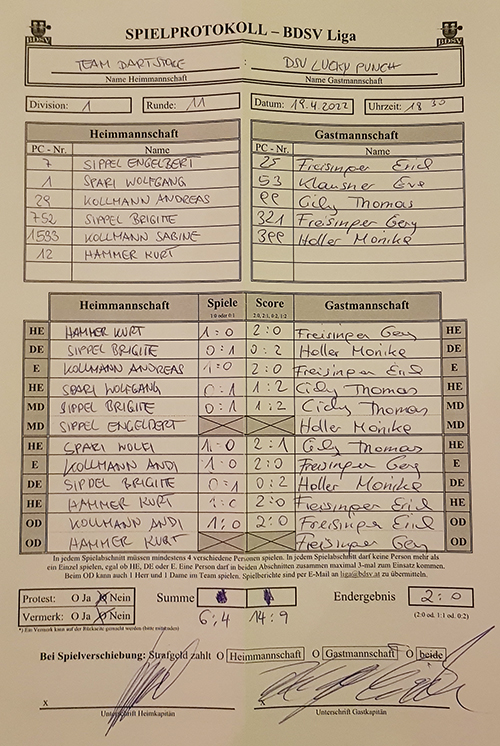 SPIELPROTOKOLL – BDSV Liga
BDSV BDSV
TEAM DARTSTORE : DSV LUCKY PUNCH
Name Heimmannschaft Name Gastmannschaft
Division: 1 Runde: 11 Datum: 19.4.2022 Uhrzeit: 18 30
Heimmannschaft Gastmannschaft
PC - Nr. Name PC - Nr. Name
7 SIPPEL ENGELBERT 25 Freisinger Erich
1 SPARI WOLFGANG 53 Klausner Eva
29 KOLLMANN ANDREAS Cily Thomas
752 SIPPEL BRIGITE 321 Freisinger Gery
1583 KOLLMANN SABINE 399 Holler Monika
12 HAMMER KURT
Heimmannschaft Spiele Score Gastmannschaft
1:0 oder 0:1 2:0, 2:1, 0:2, 1:2
HE HAMMER KURT 1:0 2:0 Freisinger Gery HE
DE SIPPEL BRIGITE 0:1 0:2 Holler Monika DE
E KOLLMANN ANDREAS 1:0 2:0 Freisinger Erich E
HE SPARI WOLFGANG 0:1 1:2 Cily Thomas HE
MD SIPPEL BRIGITE 0:1 1:2 Cily Thomas MD
MD SIPPEL ENGELBERT Holler Monika MD
HE SPARI WOLFI 1:0 2:1 Cily Thomas HE
E KOLLMANN ANDI 1:0 2:0 Freisinger Gery E
DE SIPPEL BRIGITE 0:1 0:2 Holler Monika DE
HE HAMMER KURT 1:0 2:0 Freisinger Erich HE
OD KOLLMANN ANDI 1:0 2:0 Freisinger Erich OD
OD HAMMER KURT Freisinger Gery OD
In jedem Spielabschnitt müssen mindestens 4 verschiedene Personen spielen. In jedem Spielabschnitt darf keine Person mehr als
ein Einzel spielen, egal ob HE, DE oder E. Eine Person darf in beiden Abschnitten zusammen maximal 3-mal zum Einsatz kommen.
Beim OD kann auch 1 Herr und 1 Dame im Team spielen. Spielberichte sind per E-Mail an liga@bdsv.at zu übermitteln.
Protest: O Ja O Nein Summe Endergebnis 2:0
Vermerk: *) O Ja O Nein 6:4 14:9 (2:0 od. 1:1 od. 0:2)
*) Ein Vermerk kann auf der Rückseite gemacht werden (bitte mitsenden)
Bei Spielverschiebung: Strafgold zahlt O Heimmannschaft O Gastmannschaft O beide
x x
Unterschrift Heimkapitän Unterschrift Gastkapitän